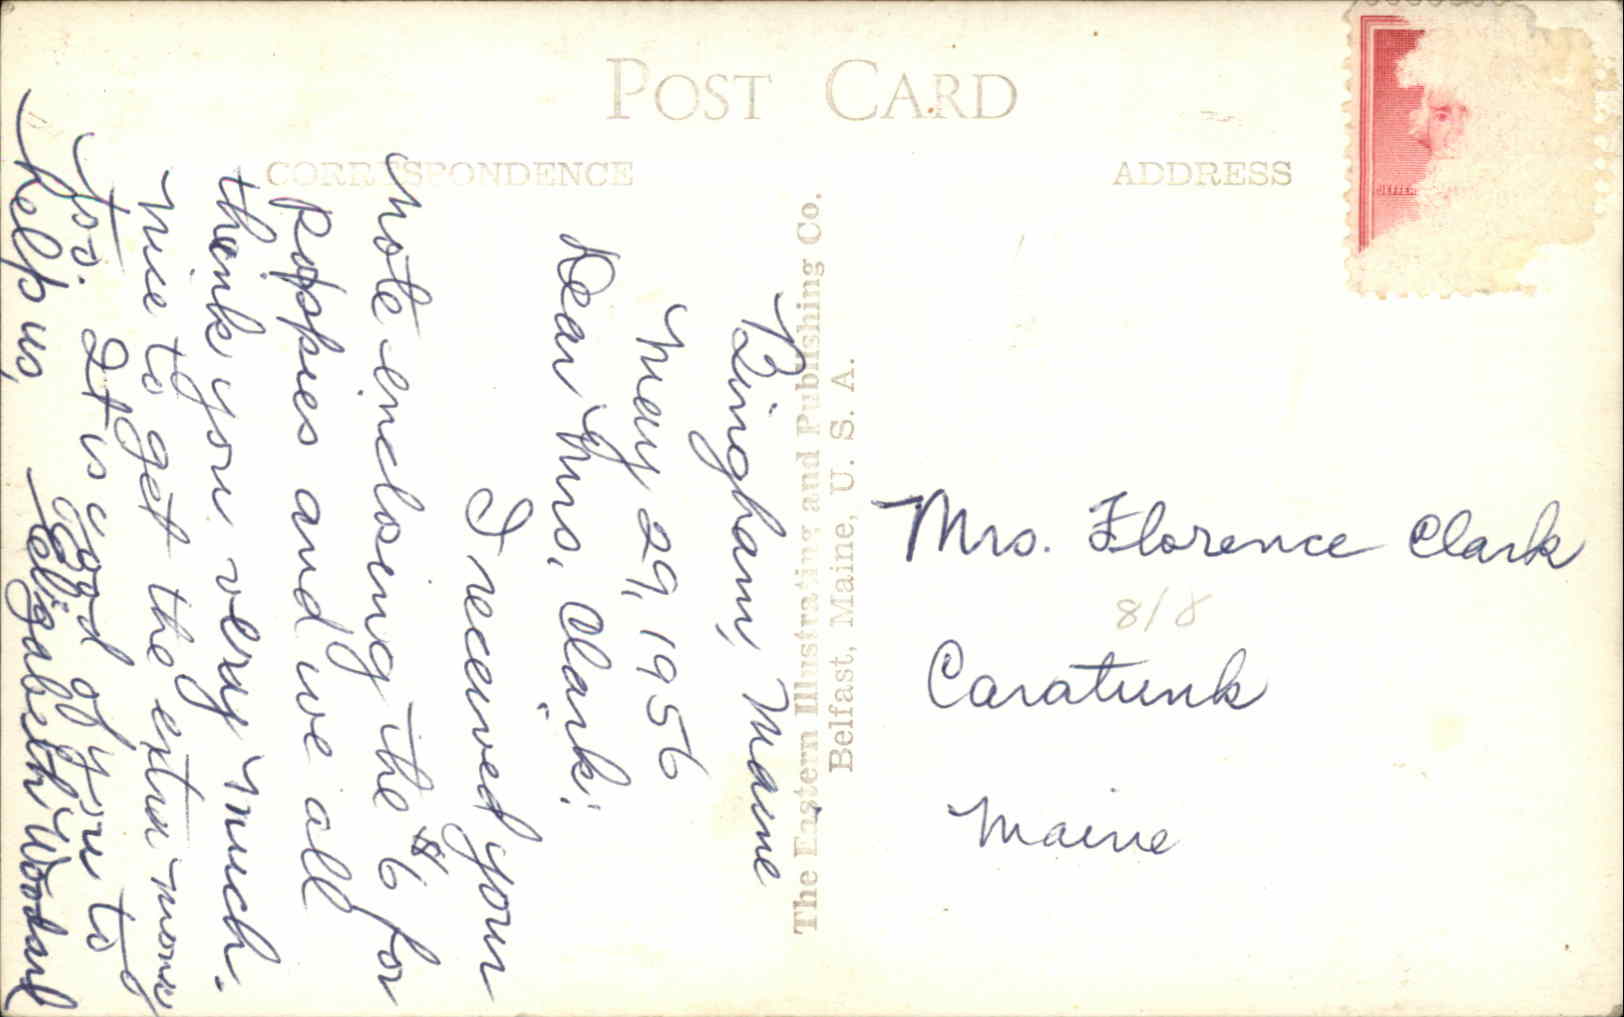 POST CARD
CORRESPONDENCE
ADDRESS
JEFFER
Bingham, Maine
May 29, 1956
Dear Mrs. Clark:
I received your
note enclosing the $6 for
poppies and we all
thank you very much.
Nice to get the extra money
too. It is good of you to
help us,
Elizabeth Woodard
The Eastern Illustrating and Publishing Co.
Belfast, Maine, U. S. A.
Mrs. Florence Clark
8/8
Caratunk
Maine